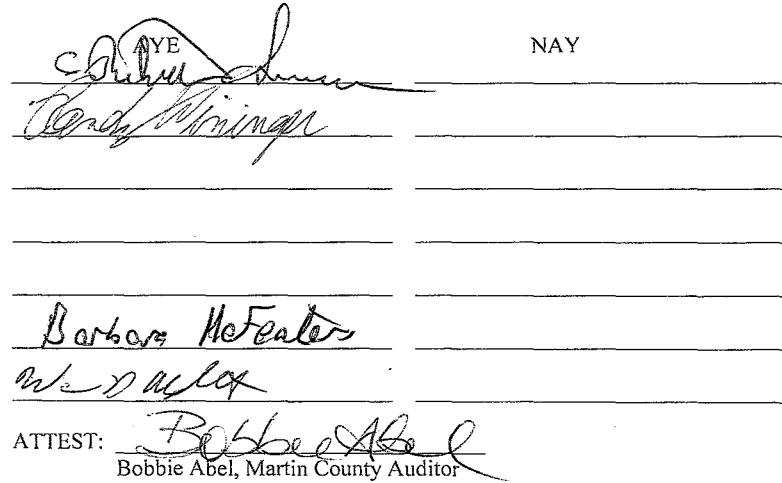 AYE NAY
Randy Wininger
Barbara McFeaters
ATTEST: Bobbie Abel
Bobbie Abel, Martin County Auditor